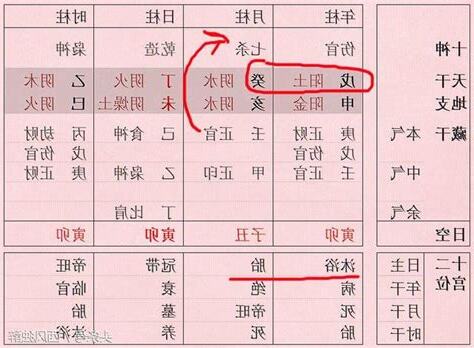 年柱 月柱 日柱 时柱
十神 伤官 七杀 乾造 枭神
天干 戊 阳土 癸 阴水 丁 阴火 乙 阴木
地支 申 阳金 亥 阴水 未 阴燥土 巳 阴火
藏干 本气 庚 正财 壬 正官 己 食神 丙 劫财
戊 伤官 戊 伤官
中气 壬 正官 甲 正印 乙 枭神 庚 正财
余气 丁 比肩
日空 寅卯 子丑 寅卯 寅卯
十二宫位 日主 沐浴 胎 冠带 帝旺
年干 病 绝 衰 临官
月干 死 帝旺 墓 胎
时干 胎 死 养 沐浴